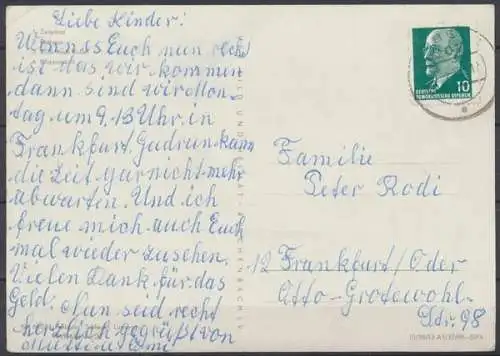 Liebe Kinder!
Wenn ss Euch nun recht
ist das wir kommen
dann sind wir Mon-
tag um 9.13 Uhr in
Frankfurt. Gudrun kann
die Zeit gar nicht mehr
abwarten. Und ich
freue mich auch Euch
mal wieder zu sehen.
Vielen Dank für das
Geld. Nun seid recht
herzlich gegrüßt von
DEUTSCHE
DEMOKRATISCHE REPUBLIK
10
Familie
Peter Rodi
12 Frankfurt/Oder
Otto-Grotewohl-
Str. 98